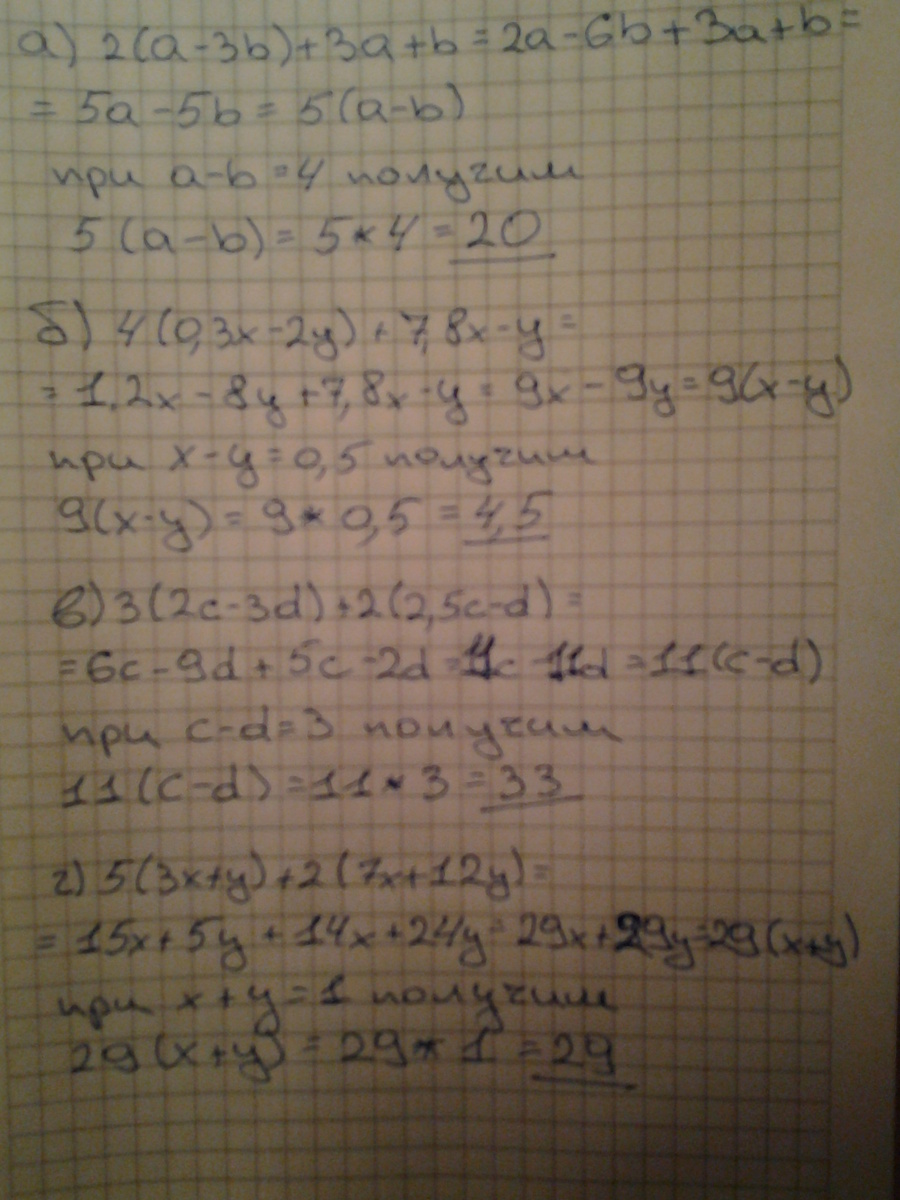 а) 2(a-3b)+3a+b=2a-6b+3a+b=
= 5a-5b = 5(a-b)
при a-b=4 получим
5(a-b) = 5*4 = 20
б) 4(0,3x-2y)+7,8x-y=
= 1,2x-8y+7,8x-y = 9x-9y=9(x-y)
при x-y=0,5 получим
9(x-y) = 9*0,5 = 4,5
в) 3(2c-3d)+2(2,5c-d)=
=6c-9d+5c-2d=11c-11d=11(c-d)
при c-d=3 получим
11(c-d)=11*3=33
г) 5(3x+y)+2(7x+12y)=
= 15x+5y+14x+24y=29x+29y=29(x+y)
при x+y=1 получим
29(x+y) = 29*1 = 29